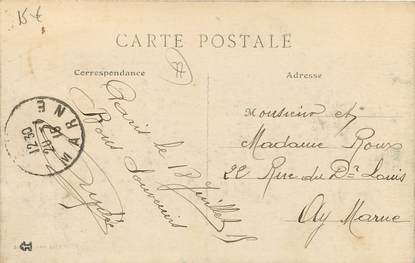 15 €
CARTE POSTALE
Correspondance
Adresse
Paris le 12 Juillet
Bons Souvenirs
Monsieur et
Madame Roux
22 Rue du Dr Louis
Ay Marne
MARNE
12 30
20